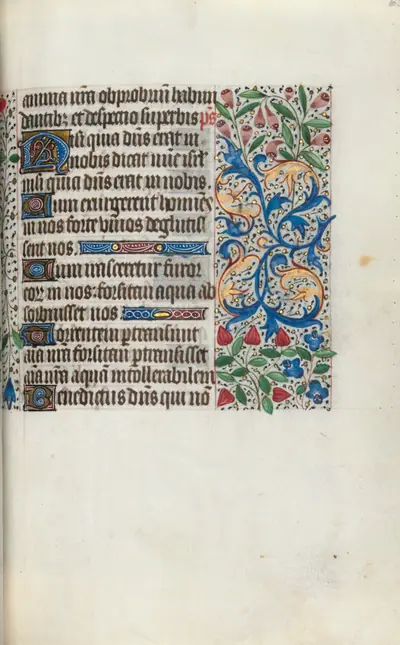 anima nra obprobrium habun
dantibz et despectio superbis ps
Nisi quia dns erat in
nobis dicat nunc isrl
nisi quia dns erat in nobis.
Cum exurgerent homies
in nos forte vivos deglutis
sent nos
Cum irasceretur furor
eor in nos: forsitan aqua ab
sorbuisset nos
Torrentem ptransiuit
aia nra forsitan ptransisset
anima aquam intollerabilem
Benedictus dns qui no